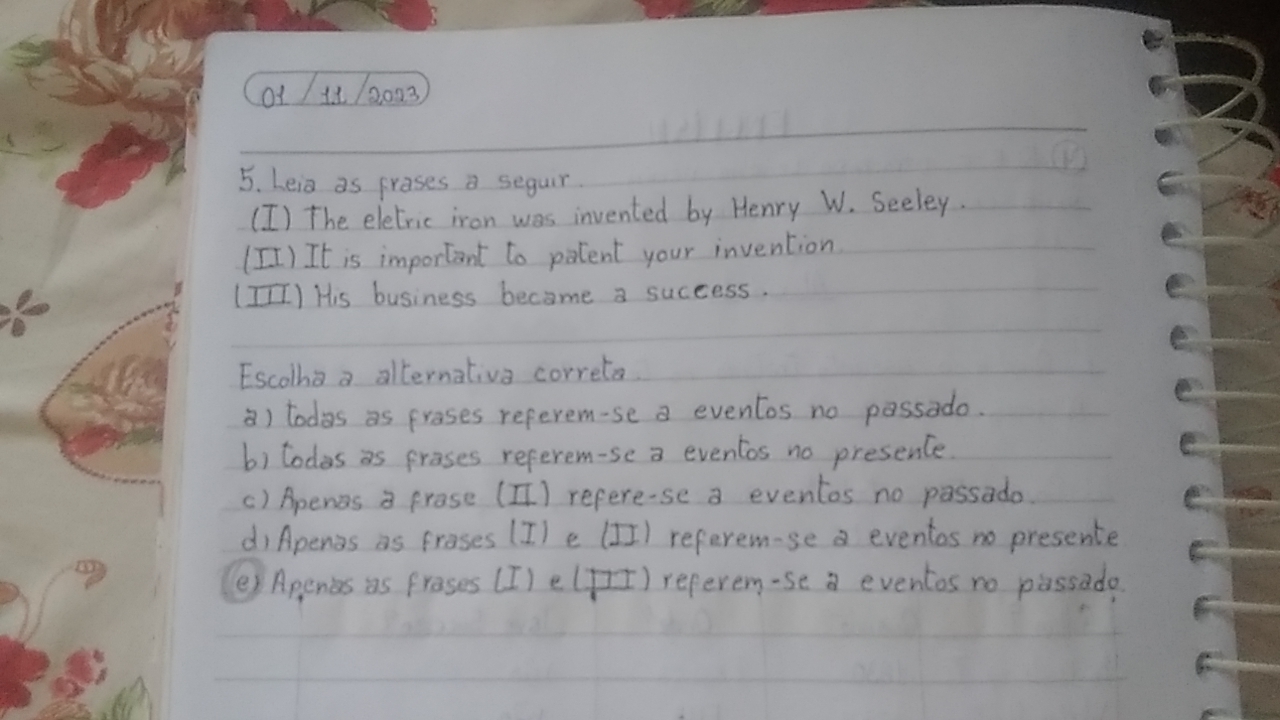 01/11/2023
5. Leia as frases a seguir.
(I) The eletric iron was invented by Henry W. Seeley.
(II) It is important to patent your invention.
(III) His business became a success.
Escolha a alternativa correta.
a) todas as frases referem-se a eventos no passado.
b) todas as frases referem-se a eventos no presente.
c) Apenas a frase (II) refere-se a eventos no passado.
d) Apenas as frases (I) e (II) referem-se a eventos no presente
e) Apenas as frases (I) e (III) referem-se a eventos no passado.